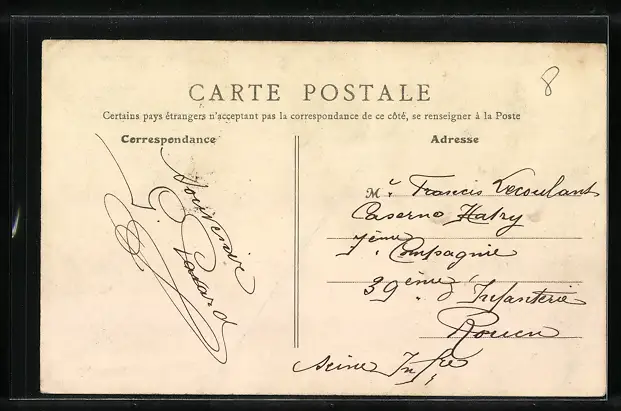 8
CARTE POSTALE
Certains pays étrangers n'acceptant pas la correspondance de ce côté, se renseigner à la Poste
Correspondance
Adresse
Souvenir
Mr Francis Lecoulant
Caserne Hatry
7ème Compagnie
39ème d'Infanterie
Rouen
Seine Infre